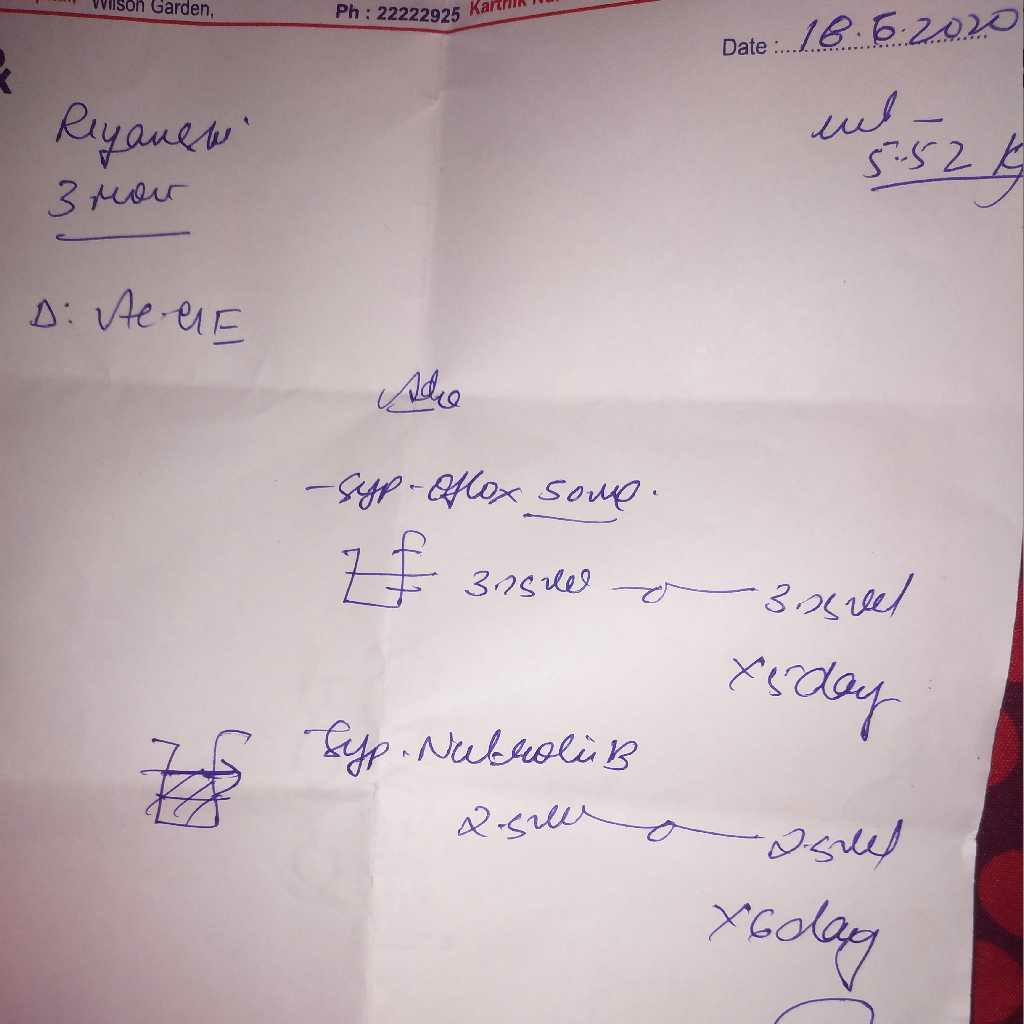 Wilson Garden,
Ph : 22222925 Karthik
Date : 18.6.2020
Riyanshi
3 mon
wt -
5.52 K
D: Ac GE
Adv
- Syp - Oflox 50mg.
3.75ml —o— 3.75ml
x5day
Syp. Nutrolin B
2.5ml —o— 2.5ml
x6day